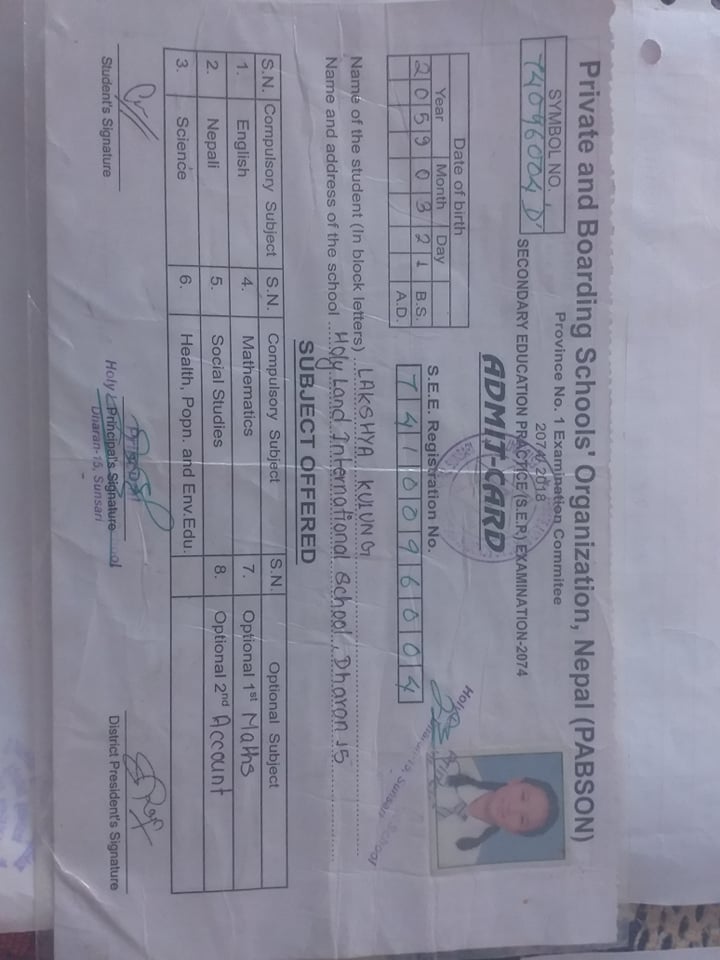 Private and Boarding Schools' Organization, Nepal (PABSON)
Province No. 1 Examination Commitee
2074/2018
SECONDARY EDUCATION PRACTICE (S.E.P.) EXAMINATION-2074
SYMBOL NO.
74096004 'D'
ADMIT-CARD
Date of birth
Year Month Day
2 0 5 9 0 3 2 1 B.S.
A.D.
S.E.E. Registration No.
7 4 1 0 0 9 6 0 0 4
Name of the student (In block letters) LAKSHYA KULUNG
Name and address of the school Holy Land International School, Dharan 15
SUBJECT OFFERED
S.N. Compulsory Subject S.N. Compulsory Subject S.N. Optional Subject
1. English 4. Mathematics 7. Optional 1st Maths
2. Nepali 5. Social Studies 8. Optional 2nd Account
3. Science 6. Health, Popn. and Env.Edu.
Student's Signature
Principal's Signature
Holy
Dharan-15, Sunsari
District President's Signature
Holy
School
Sunsari